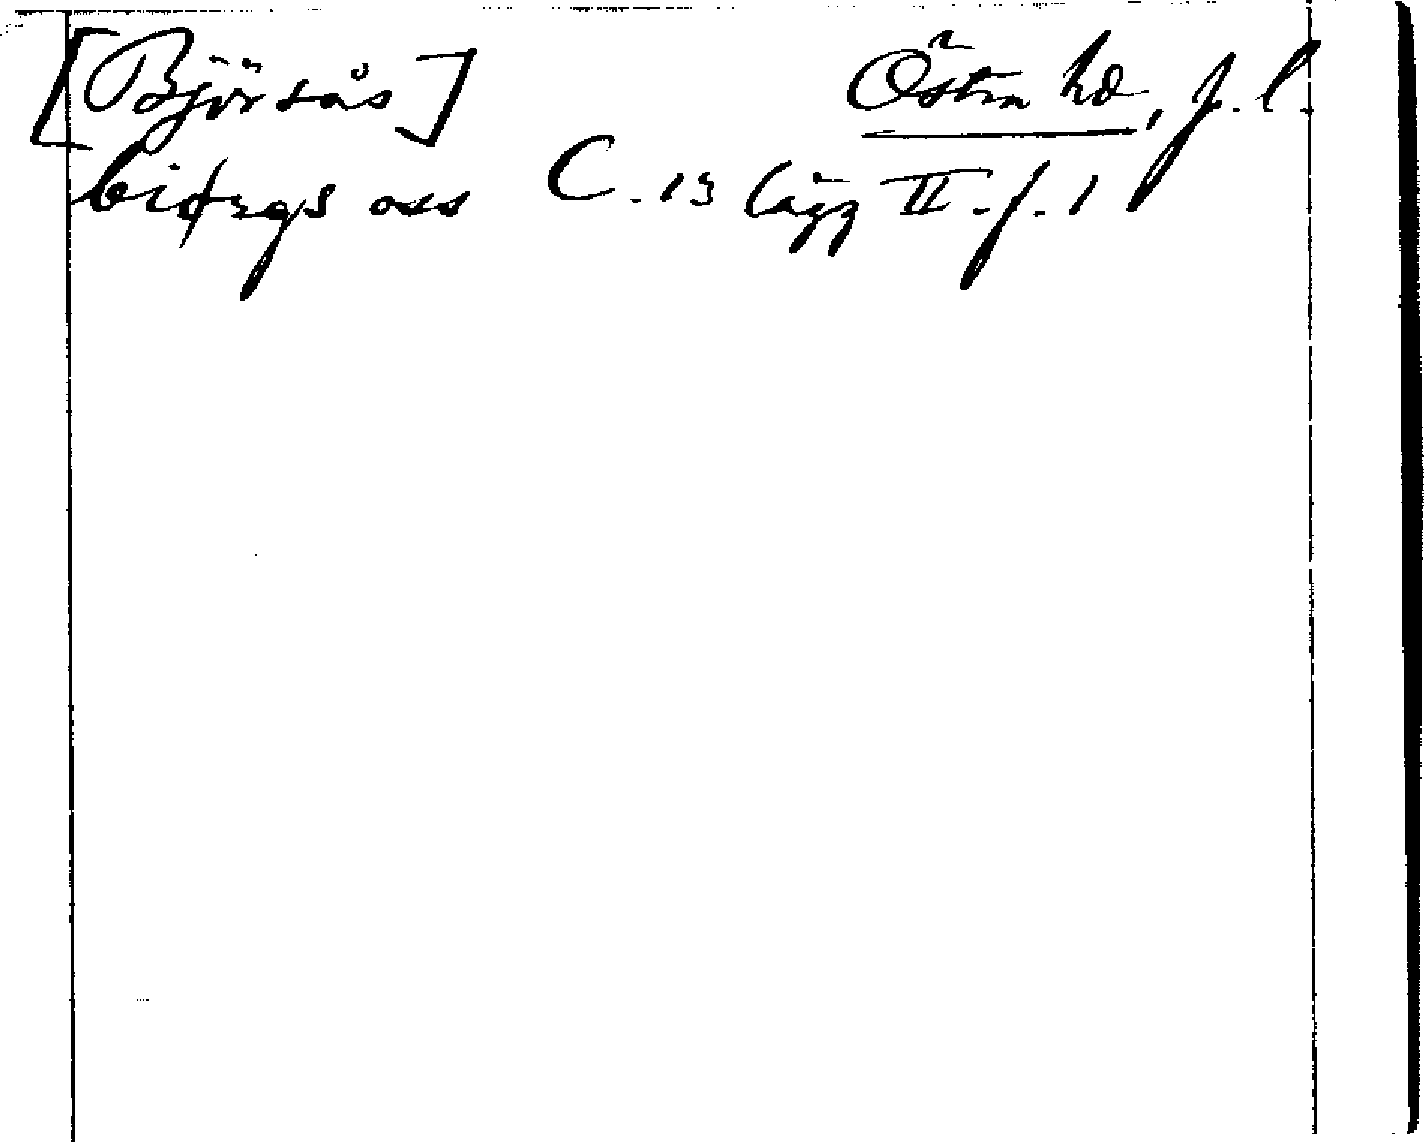 [Björsås] Östra hd, f.l.
biørgs oss C. 13 lägg II. f. 1